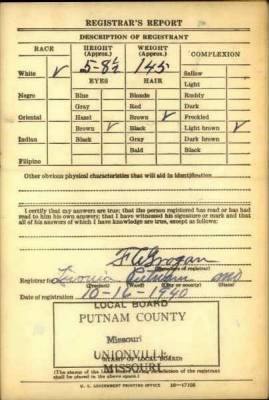 REGISTRAR'S REPORT
DESCRIPTION OF REGISTRANT
RACE
HEIGHT (Approx.)
WEIGHT (Approx.)
COMPLEXION
White ✓
5-8½
145
Sallow
EYES
HAIR
Light
Negro
Blue
Blonde
Ruddy
Gray
Red
Dark
Oriental
Hazel
Brown ✓
Freckled
Brown ✓
Black
Light brown ✓
Indian
Black
Gray
Dark brown
Bald
Black
Filipino
Other obvious physical characteristics that will aid in identification
I certify that my answers are true; that the person registered has read or has had
read to him his own answers; that I have witnessed his signature or mark and that
all of his answers of which I have knowledge are true, except as follows:
F C Grogan
(Signature of registrar)
Registrar for Putnam Mo
(Precinct) (City or county) (State)
Date of registration 10-16-1940
LOCAL BOARD
PUTNAM COUNTY
Missouri
UNIONVILLE,
STAMP OF LOCAL BOARD
MISSOURI
(The stamp of the Local Board having jurisdiction of the registrant
shall be placed in the above space.)
U. S. GOVERNMENT PRINTING OFFICE